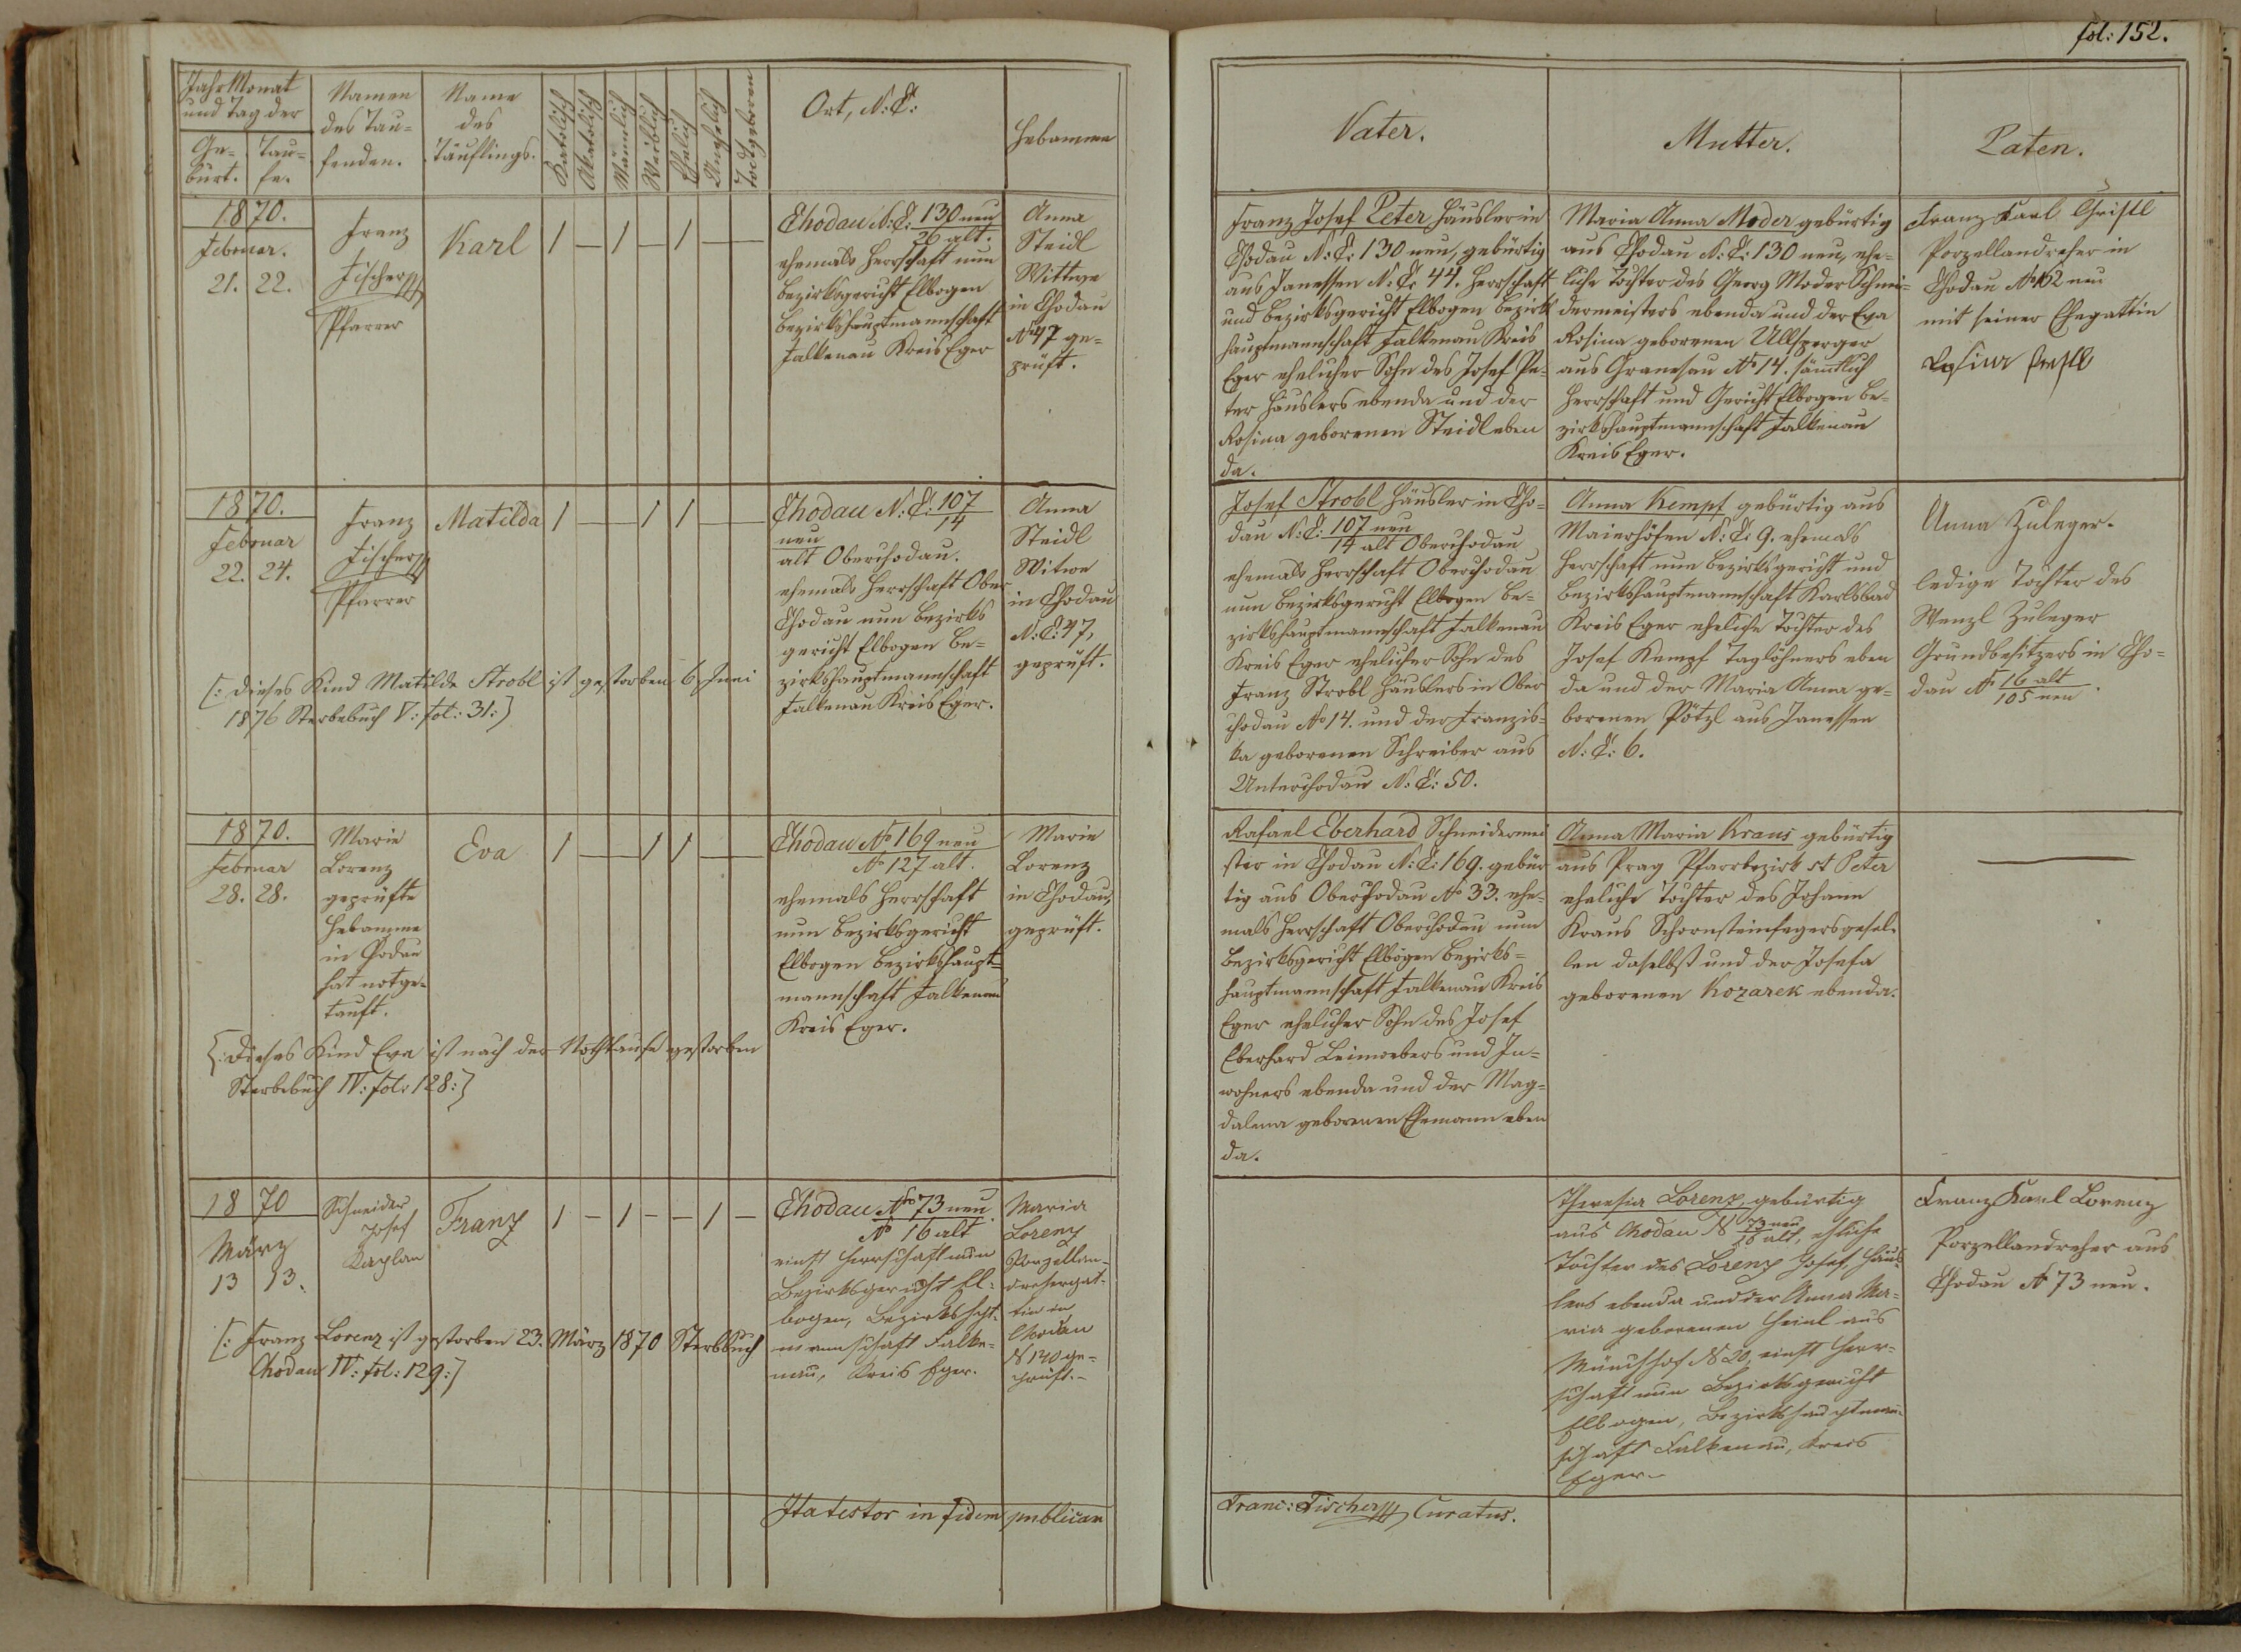 fol: 152.
Jahr Monat
und Tag der
Ge-
burt.
Tau-
fe.
Namen
des Tau-
fenden.
Name
des
Täuflings.
Katolisch
Akatolisch
Männlich
Weiblich
Ehelich
Unehelich
Todtgeboren
Ort, N: C:
Hebamme
Vater.
Mutter.
Paten.
1870.
Februar.
21. 22.
Franz
Fischer
Pfarrer
Karl
1 — 1 — 1 —
Chodau N: C: 130 neu
26 alt.
ehemals Herrschaft nun
Bezirksgericht Elbogen
Bezirkshauptmannschaft
Falkenau Kreis Eger
Anna
Steidl
Wittwe
in Chodau
No 47 ge-
prüft.
Franz Josef Peter Häusler in
Chodau N: C: 130 neu, gebürtig
aus Janessen N: C: 44. Herrschaft
und Bezirksgericht Elbogen Bezirk
hauptmannschaft Falkenau Kreis
Eger ehelicher Sohn des Josef Pe-
ter Häuslers ebenda und der
Rosina geborenen Steidl eben
da.
Maria Anna Moder gebürtig
aus Chodau N: C: 130 neu, ehe-
liche Tochter des Georg Moder Schnei-
dermeisters ebenda und der Eva
Rosina geborenen Ullsperger
aus Granesau No 14. sämtlich
Herrschaft und Gericht Elbogen Be-
zirkshauptmannschaft Falkenau
Kreis Eger.
Franz Karl Christl
Porzellandreher in
Chodau No 162 neu
mit seiner Ehegattin
1870.
Februar
22. 24.
Franz
Fischer
Pfarrer
Matilda
1 — 1 1 —
Chodau N: C: 107
14
neu
alt Oberchodau.
ehemals Herrschaft Ober
Chodau nun Bezirks
gericht Elbogen Be-
zirkshauptmannschaft
Falkenau Kreis Eger.
Anna
Steidl
Witwe
in Chodau
N: C: 47,
geprüft.
[: Dieses Kind Matilde Strobl ist gestorben 6 Juni
1876 Sterbebuch V: fol: 31:]
Josef Strobl Häusler in Cho-
dau N: C: 107 neu
14 alt Oberchodau
ehemals Herrschaft Oberchodau
nun Bezirksgericht Elbogen Be-
zirkshauptmannschaft Falkenau
Kreis Eger ehelicher Sohn des
Franz Strobl Häuslers in Ober
chodau No 14. und der Franzis-
ka geborenen Schreiber aus
Unterchodau N: C: 50.
Anna Kempf gebürtig aus
Maierhöfen N: C: 9. ehemals
Herrschaft nun Bezirksgericht und
Bezirkshauptmannschaft Karlsbad
Kreis Eger eheliche Tochter des
Josef Kempf Taglöhners eben
da und der Maria Anna ge-
borenen Pötzl aus Janessen
N: C: 6.
Anna Zuleger.
ledige Tochter des
Wenzl Zuleger
Grundbesitzers in Cho-
dau No 16 alt
105 neu.
1870.
Februar
28. 28.
Marie
Lorenz
geprüfte
Hebamme
in Chodau
hat notge-
tauft.
Eva
1 — 1 1 —
Chodau No 169 neu
No 127 alt.
ehemals Herrschaft
nun Bezirksgericht
Elbogen Bezirkshaupt-
mannschaft Falkenau
Kreis Eger.
Marie
Lorenz
in Chodau,
geprüft.
[: Dieses Kind Eva ist nach der Nothtaufe gestorben
Sterbebuch IV: fol: 128:]
Rafael Eberhard Schneidermei
ster in Chodau N: C: 169. gebür
tig aus Oberchodau No 33. ehe-
mals Herrschaft Oberchodau nun
Bezirksgericht Elbogen Bezirks-
hauptmannschaft Falkenau Kreis
Eger ehelicher Sohn des Josef
Eberhard Leinwebers und In-
wohners ebenda und der Mag-
dalena geborenen Ehemann eben
da.
Anna Maria Kraus gebürtig
aus Prag Pfarrbezirk st Peter
eheliche Tochter des Johann
Kraus Schornsteinfegersgesel-
len daselbst und der Josefa
geborenen Kozarek ebenda.
1870
März
13 13.
Schneider
Josef
Kaplan
Franz
1 – 1 – – 1 –
Chodau No 73 neu
No 16 alt
einst Herrschaft nun
Bezirksgericht El-
bogen, Bezirkshpt-
mannschaft Falke-
nau, Kreis Eger.
Maria
Lorenz
Porzellan-
drehergat-
tin in
Chodau
N 140 ge-
prüft.-
[: Franz Lorenz ist gestorben 23. März 1870 Sterbbuch
Chodau IV: fol: 129:]
Theresia Lorenz, gebürtig
aus Chodau N 73 neu
16 alt, ehliche
Tochter des Lorenz Josef, Häus-
lers ebenda und der Anna Ma-
ria geborenen Heinl aus
Münchhof N 20, einst Herr-
schaft nun Bezirksgericht
Elbogen, Bezirkshauptmann-
schaft Falkenau, Kreis
Eger.-
Franz Karl Lorenz
Porzellandreher aus
Chodau No 73 neu.
Ita testor in fidem publicam
Franc: Fischer Curatus.